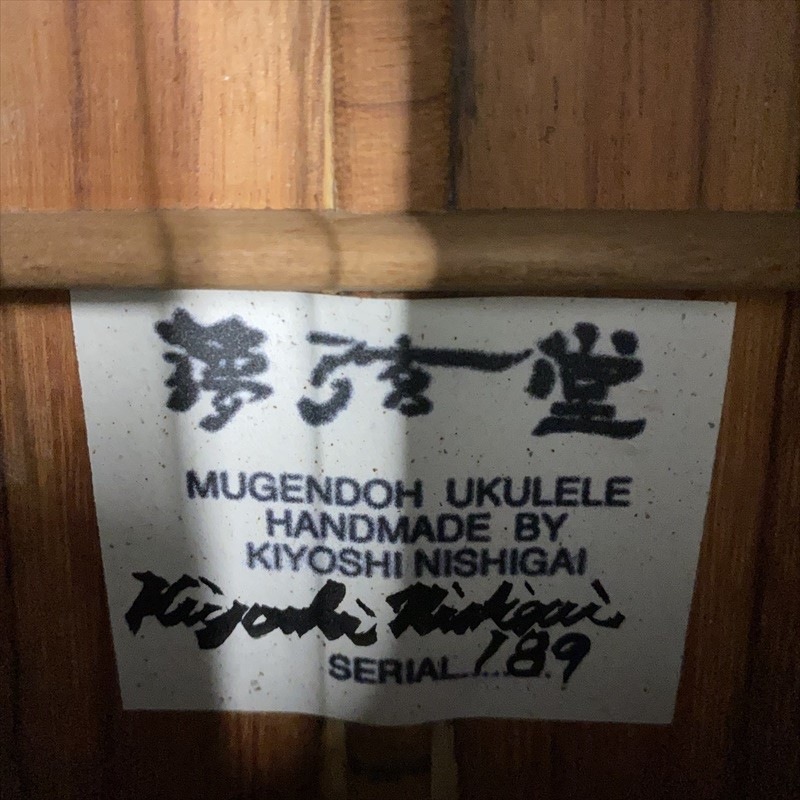 夢弦堂
MUGENDOH UKULELE
HANDMADE BY
KIYOSHI NISHIGAI
Kiyoshi Nishigai
SERIAL 189